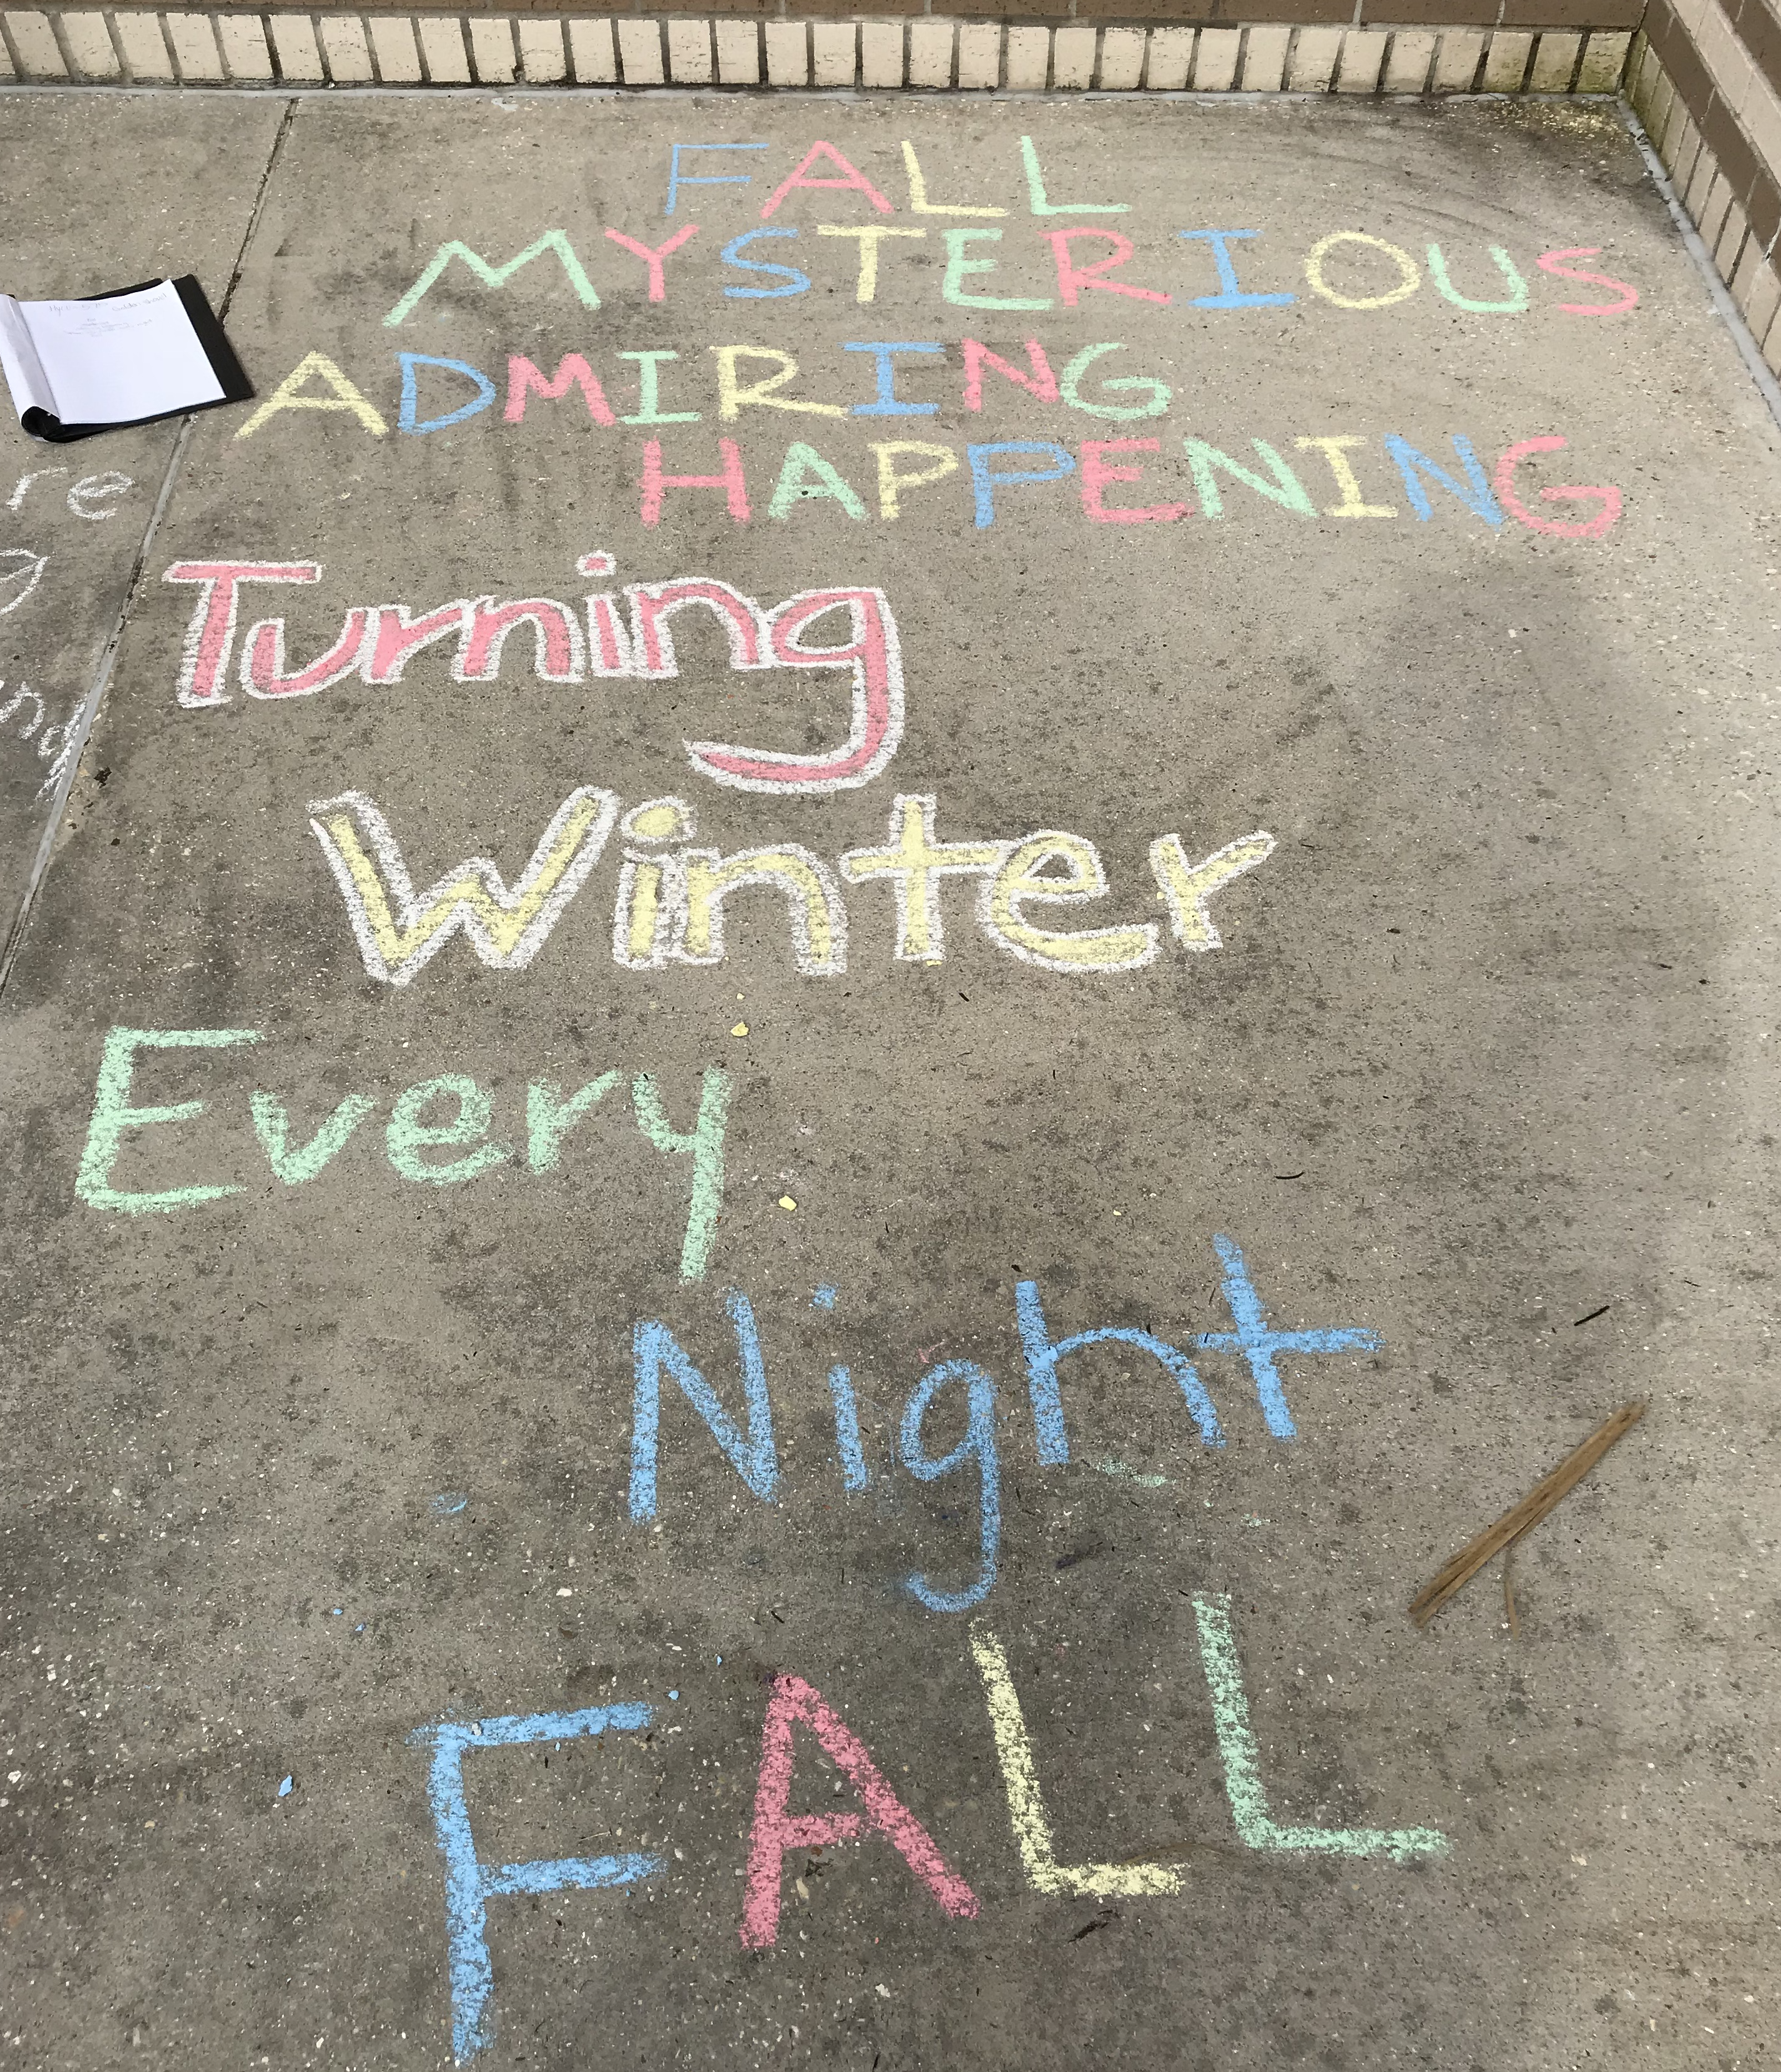 FALL
MYSTERIOUS
ADMIRING
HAPPENING
Turning
Winter
Every
Night
FALL
re